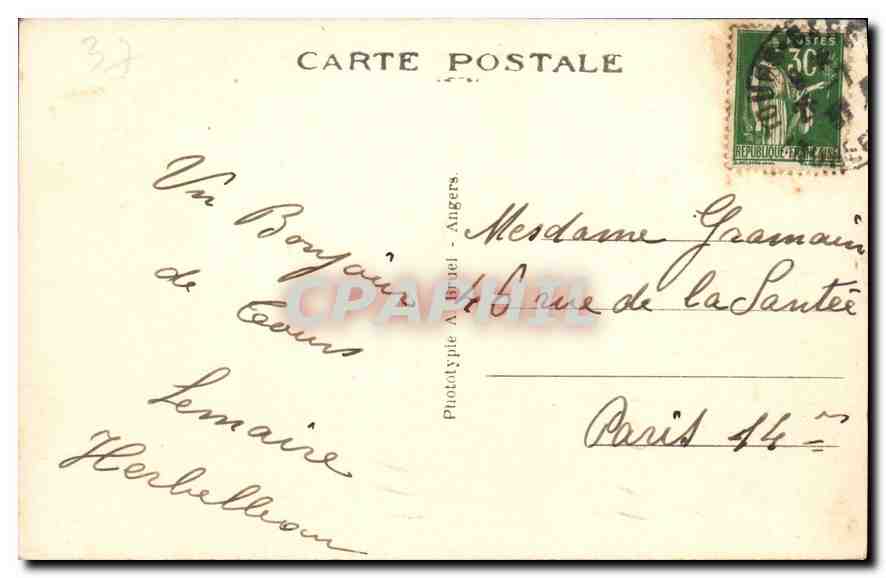 37
CARTE POSTALE
POSTES
30c
REPUBLIQUE FRANÇAISE
Un Bonjour
de
Tours
Lemaire
Herbelleau
Phototypie A. Bruel - Angers.
Mesdame Gramain
46 rue de la Santée
Paris 14 m
CPAPHIL